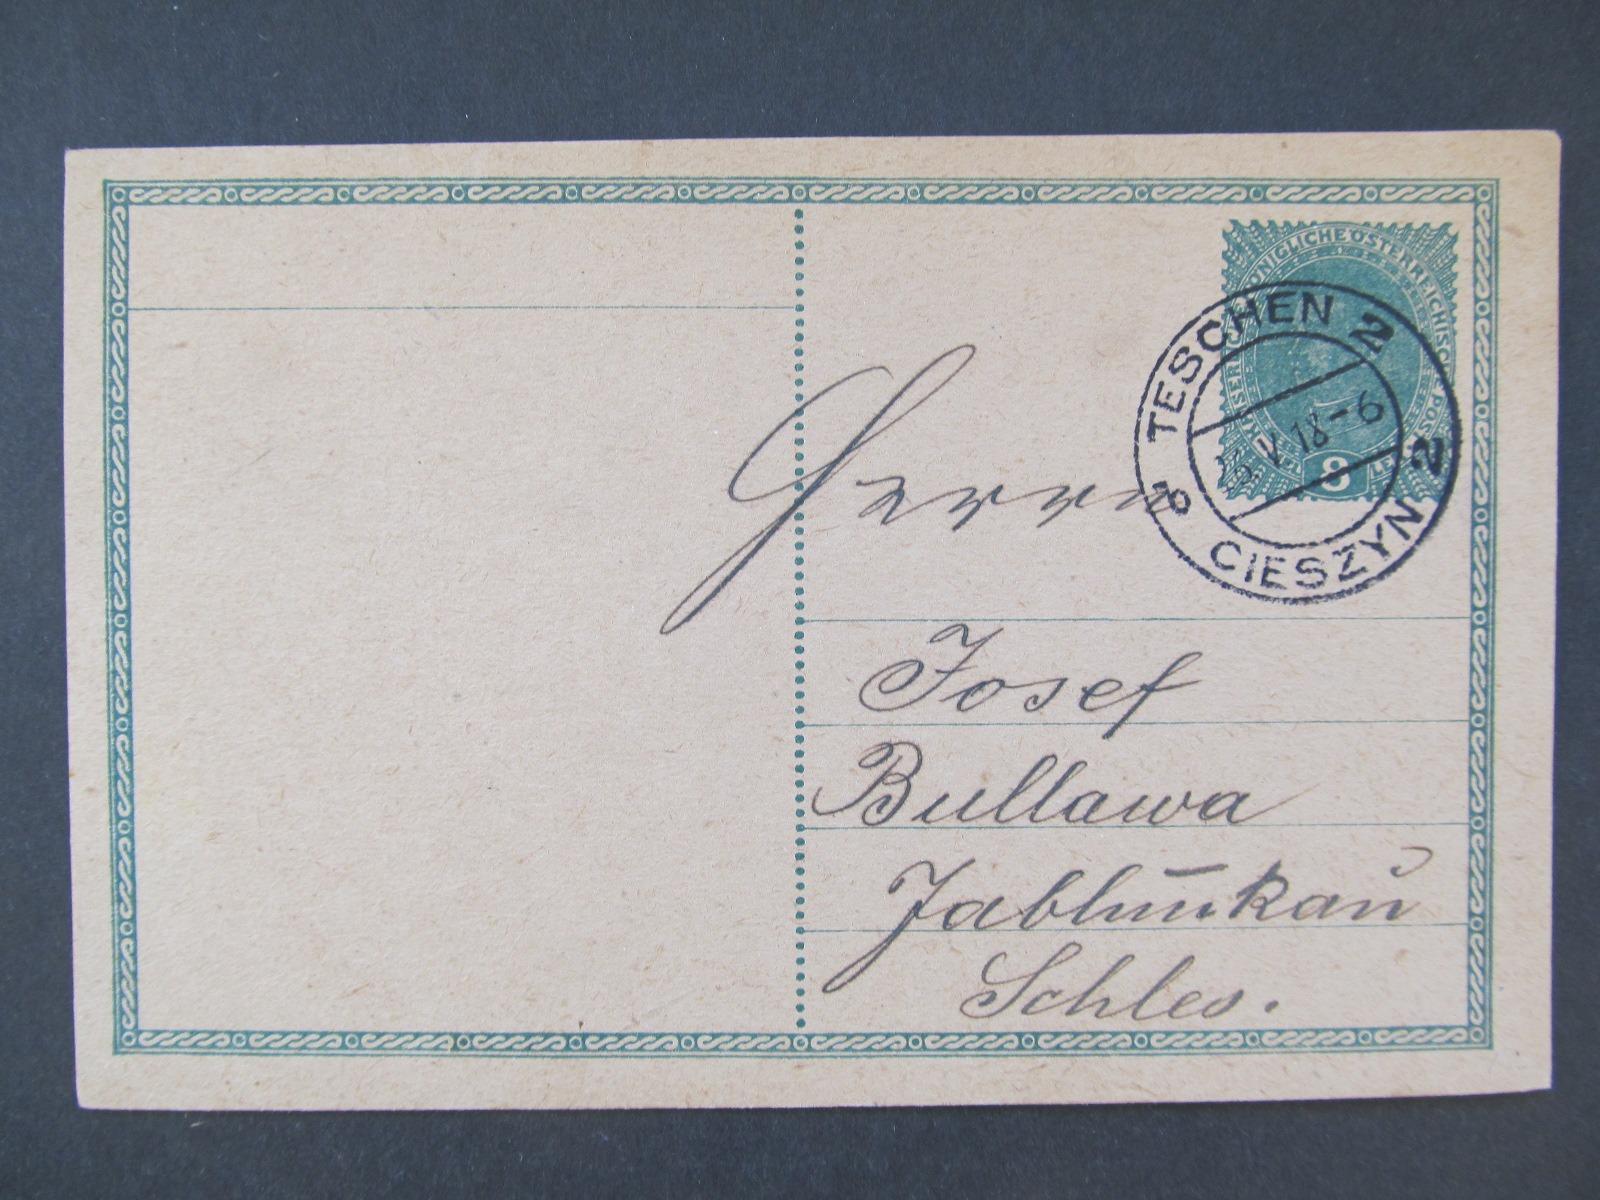 KAISERLICHE KÖNIGLICHE ÖSTERREICHISCHE POST
8
TESCHEN 2
V 18-6
CIESZYN 2
c
Herrn
Josef
Bullawa
Jablunkau
Schles.